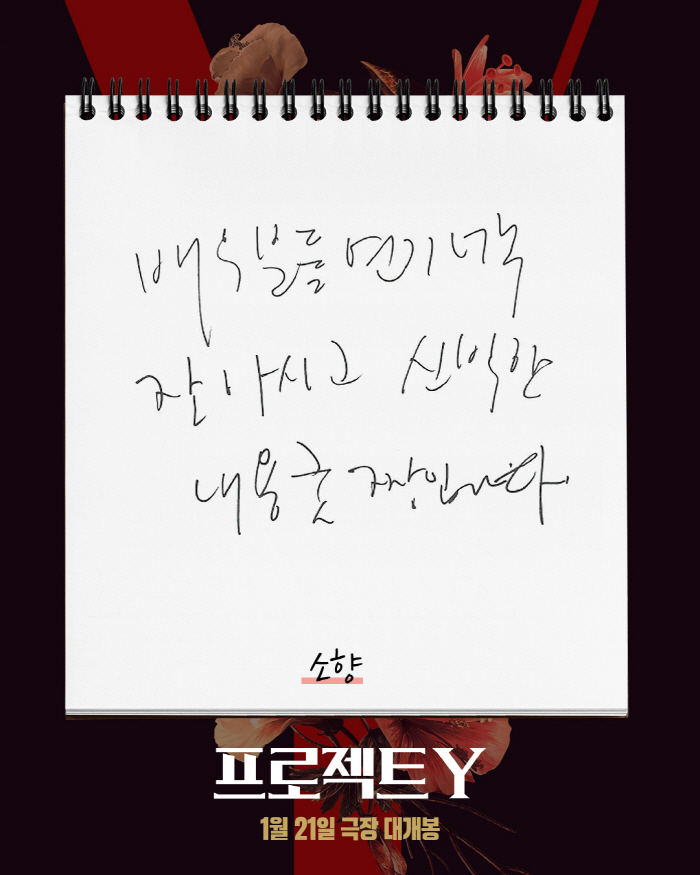 배우분들 연기 너무
잘하시고 신박한
내용굿 짱입니다.
소향
프로젝트 Y
1월 21일 극장 대개봉